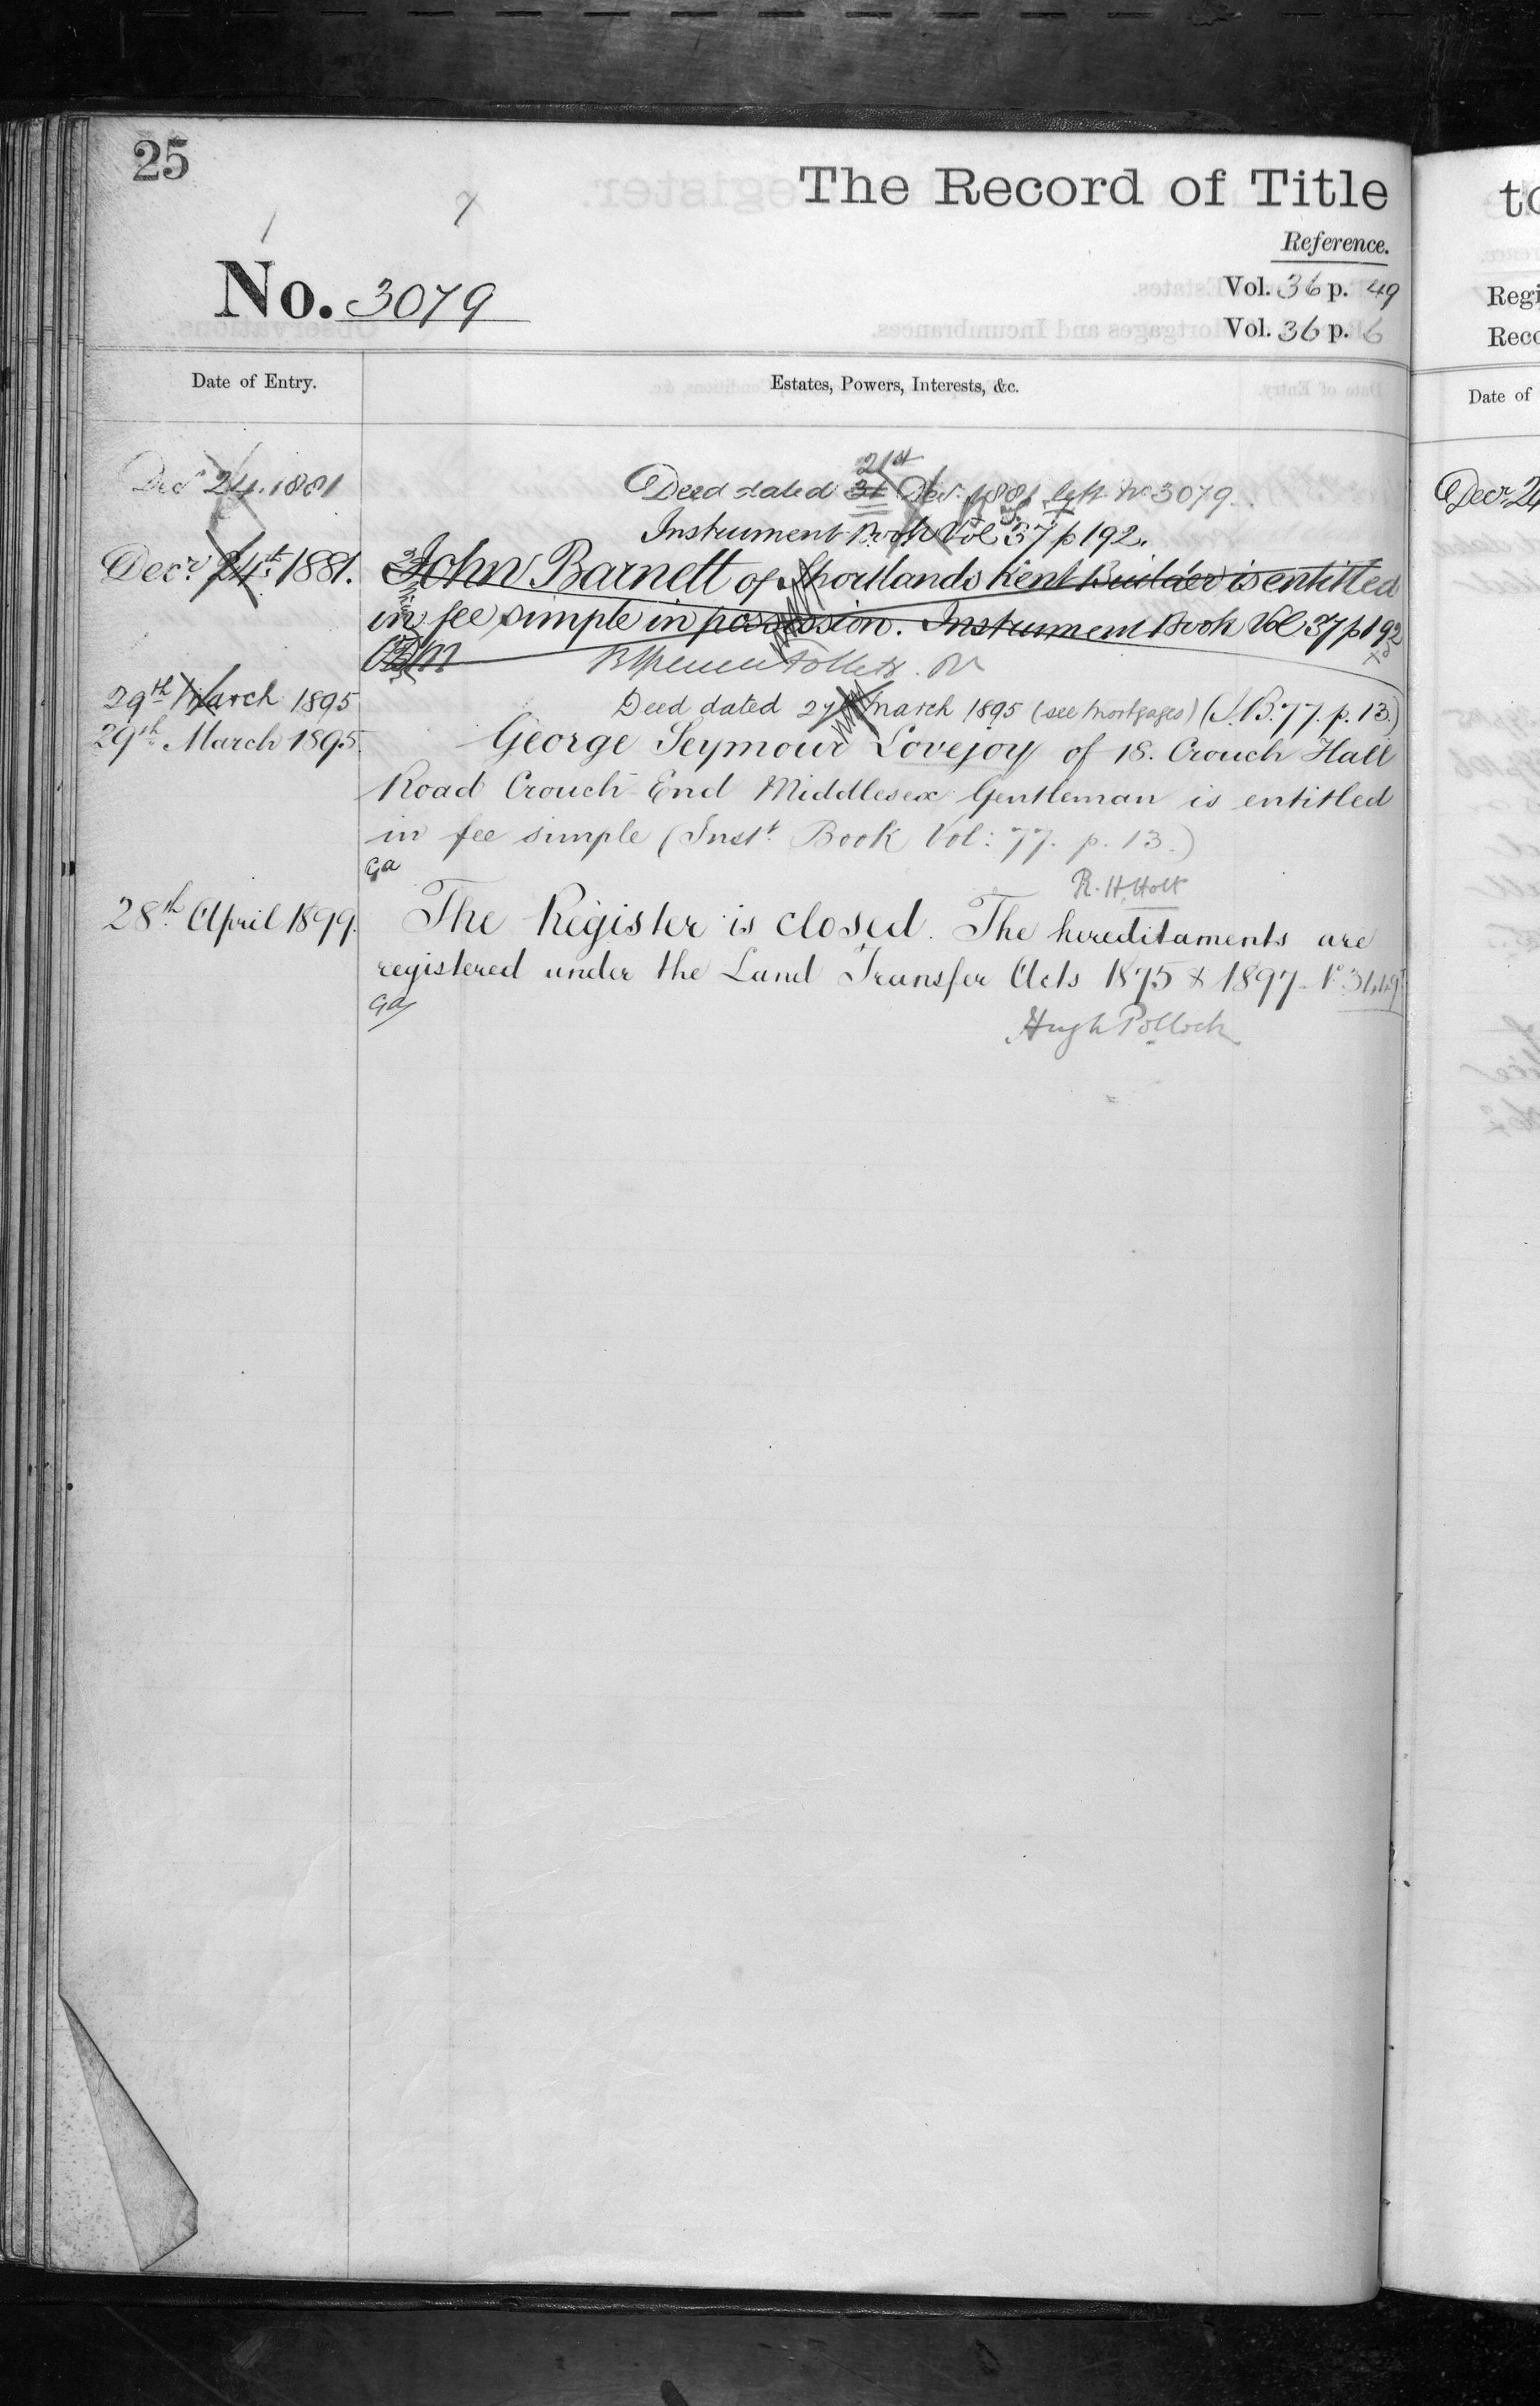 25
The Record of Title
Reference.
No. 3079
Vol. 36 p. 49
Vol. 36 p. 6
Date of Entry.
Estates, Powers, Interests, &c.
Decr 24. 1881
21st
Deed dated 31 1881 left No 3079.
Instrument Book Vol 37 p 192.
Decr. 24th 1881. John Barnett of Shortlands Kent Builder is entitled
in fee simple in possession. Instrument Book Vol 37 p 192
29th March 1895 Deed dated 27 March 1895 (see Mortgages) (I.B. 77. p. 13.)
29th March 1895. George Seymour Lovejoy of 18. Crouch Hall
Road Crouch End Middlesex Gentleman is entitled
in fee simple (Inst. Book Vol: 77. p. 13.)
Ga
R. H. Holt
28th April 1899. The Register is closed. The hereditaments are
registered under the Land Transfer Acts 1875 & 1897
Ga
Hugh Pollock
to
Regi
Reco
Date of
Decr 24